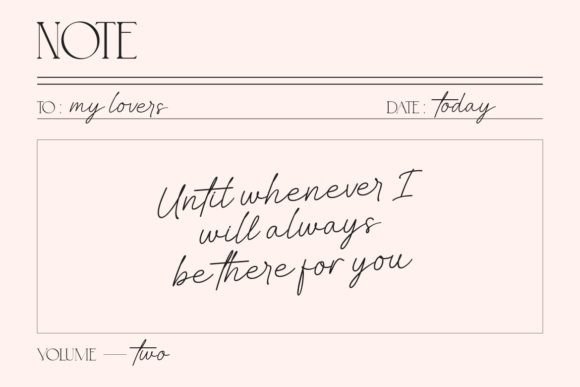 NOTE
TO : my lovers
DATE : today
Until whenever I
will always
be there for you
VOLUME — two